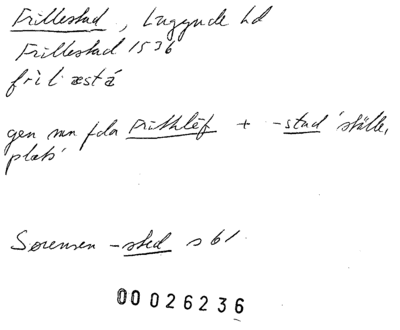 Frillestad, Luggude hd
Frillestad 1536
fril æstá
gen mn fda Frithlef + -stad 'ställe,
plats'
Sørensen -sted s 61.
00026236